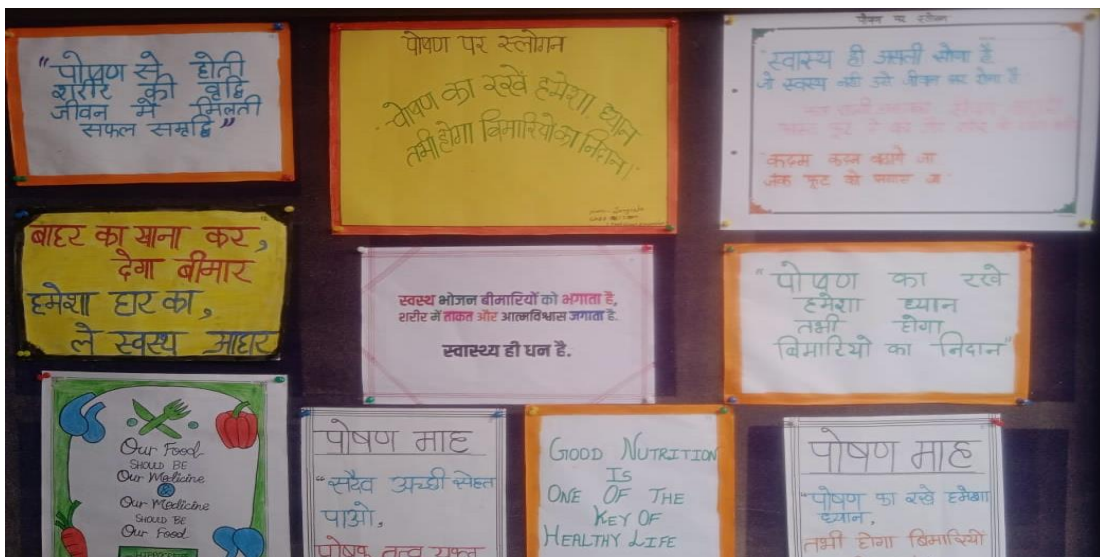 "पोषण से होती
शरीर की वृद्धि
जीवन में मिलती
सफल समृद्धि"
पोषण पर स्लोगन
"पोषण का रखें हमेशा ध्यान
तभी होगा बिमारियों का निदान।"
पोषण पर स्लोगन
"स्वास्थ ही असली सोना है
कदम कदम बढ़ाये जा
बाहर का खाना कर,
देगा बीमार
हमेशा घर का,
ले स्वस्थ आहार
स्वस्थ भोजन बीमारियों को भगाता है,
शरीर में ताकत और आत्मविश्वास जगाता है.
स्वास्थ्य ही धन है.
"पोषण का रखे
हमेशा ध्यान
तभी होगा
बिमारियो का निदान"
Our Food
SHOULD BE
Our Medicine
&
Our Medicine
SHOULD BE
Our Food
पोषण माह
"सदैव अच्छी सेहत
पाओ,
पोषक तत्व युक्त
GOOD NUTRITION
IS
ONE OF THE
KEY OF
HEALTHY LIFE
पोषण माह
"पोषण का रखे हमेशा
ध्यान,
तभी होगा बिमारियों